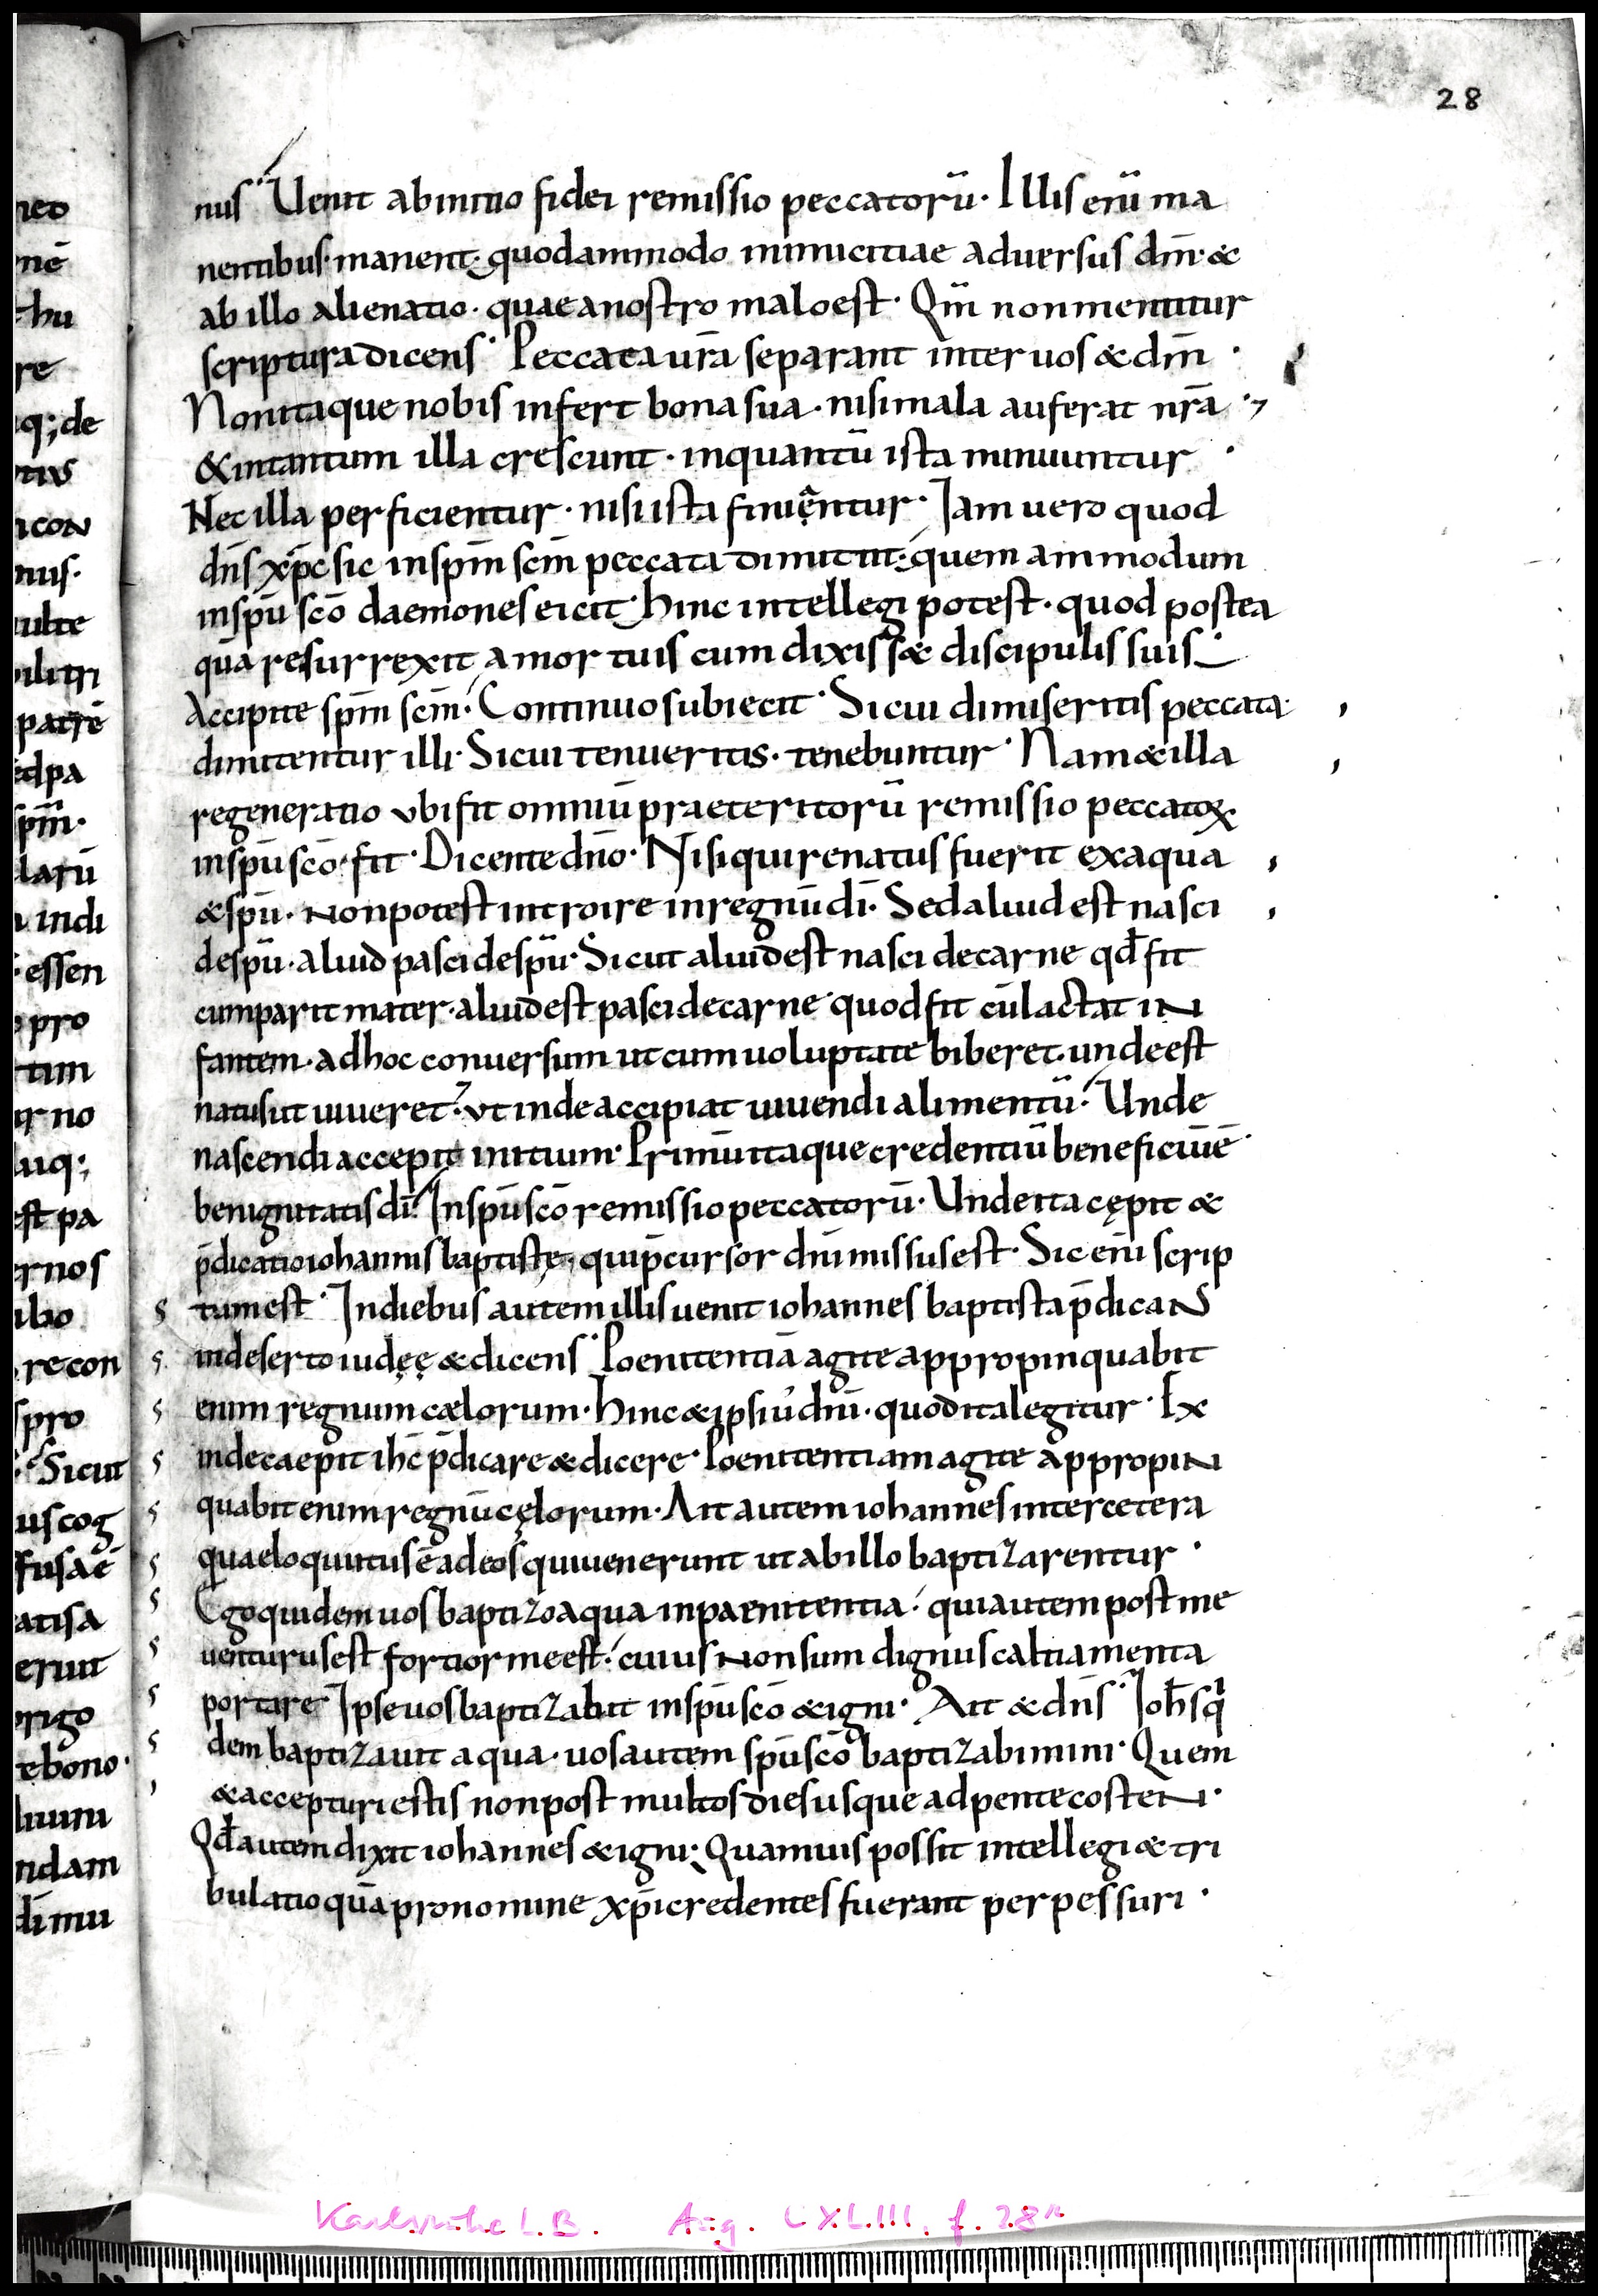 28
nus· Uenit abinitio fidei remissio peccatorū· Illis enī ma
nentibus· manent· quodammodo inimicitiae aduersus dm̄· &
ab illo alienatio· quae anostro maloest· Qm̄ nonmentitur
scriptura dicens· Peccata ur̄a separant inter uos & dm̄·
Nonitaque nobis infert bona sua· nisi mala auferat nr̄a
& intantum illa crescunt· inquantū ista minuuntur·
Nec illa perficientur· nisi ista finientur· Iam uero quod
dn̄s xp̄c sic inspm̄ scm̄ peccata dimittit· quem ammodum
inspū scō daemones eicit· hinc intellegi potest· quod postea
quā resurrexit amortuis cum dixiss& discipulis suis
Accipite spm̄ scm̄· Continuo subiecit· Sicui dimiseritis peccata
dimittentur illi· Sicui tenueritis· tenebuntur· Nam & illa
regeneratio ubi fit omniū praeteritorū remissio peccatoꝝ
inspū scō· fit· Dicente dn̄o· Nisi qui renatus fuerit exaqua
& spū· non potest introire inregnū dī· Sed aliud est nasci
despū· aliud pasci despū· Sicut aliud est nasci decarne qd̄ fit
cumparit mater· aliud est pasci decarne quod fit cū lactat in
fantem· adhoc conuersum ut cum uoluptate biberet· unde est
natus ut uiueret· ut inde accipiat uiuendi alimentū· Unde
nascendi accepit initium· Primū itaque credentiū beneficiū ē
benignitatis dī· Inspū scō remissio peccatorū· Unde ita cępit &
p̄dicatio iohannis baptistę· qui p̄cursor dn̄i missus est· Sic enī scrip
tum est· Indiebus autem illis uenit iohannes baptista p̄dicans
indeserto iudęę & dicens· Poenitentiā agite appropinquabit
enim regnum cælorum· hinc & ipsius dn̄i· quod ita legitur· Ex
inde caepit ih̄c p̄dicare & dicere· Poenitentiam agite appropin
quabit enim regnū cęlorum· Ait autem iohannes inter cetera
quae loquutus ē adeos qui uenerunt ut ab illo baptizarentur·
Ego quidem uos baptizo aqua inpaenitentia· qui autem post me
uenturus est fortior me est· cuius non sum dignus caltiamenta
portare· Ipse uos baptizabit inspū scō & igni· Ait & dn̄s· Ioh̄s q
dem baptizauit aqua· uos autem spū scō baptizabimini· Quem
& accepturi estis non post multos dies usque adpentecosten·
Qd̄ autem dixit iohannes & igni· Quamuis possit intellegi & tri
bulatio quā pro nomine xp̄i credentes fuerant perpessuri·
Karlsruhe L.B. Aug. CXLIII. f. 28r